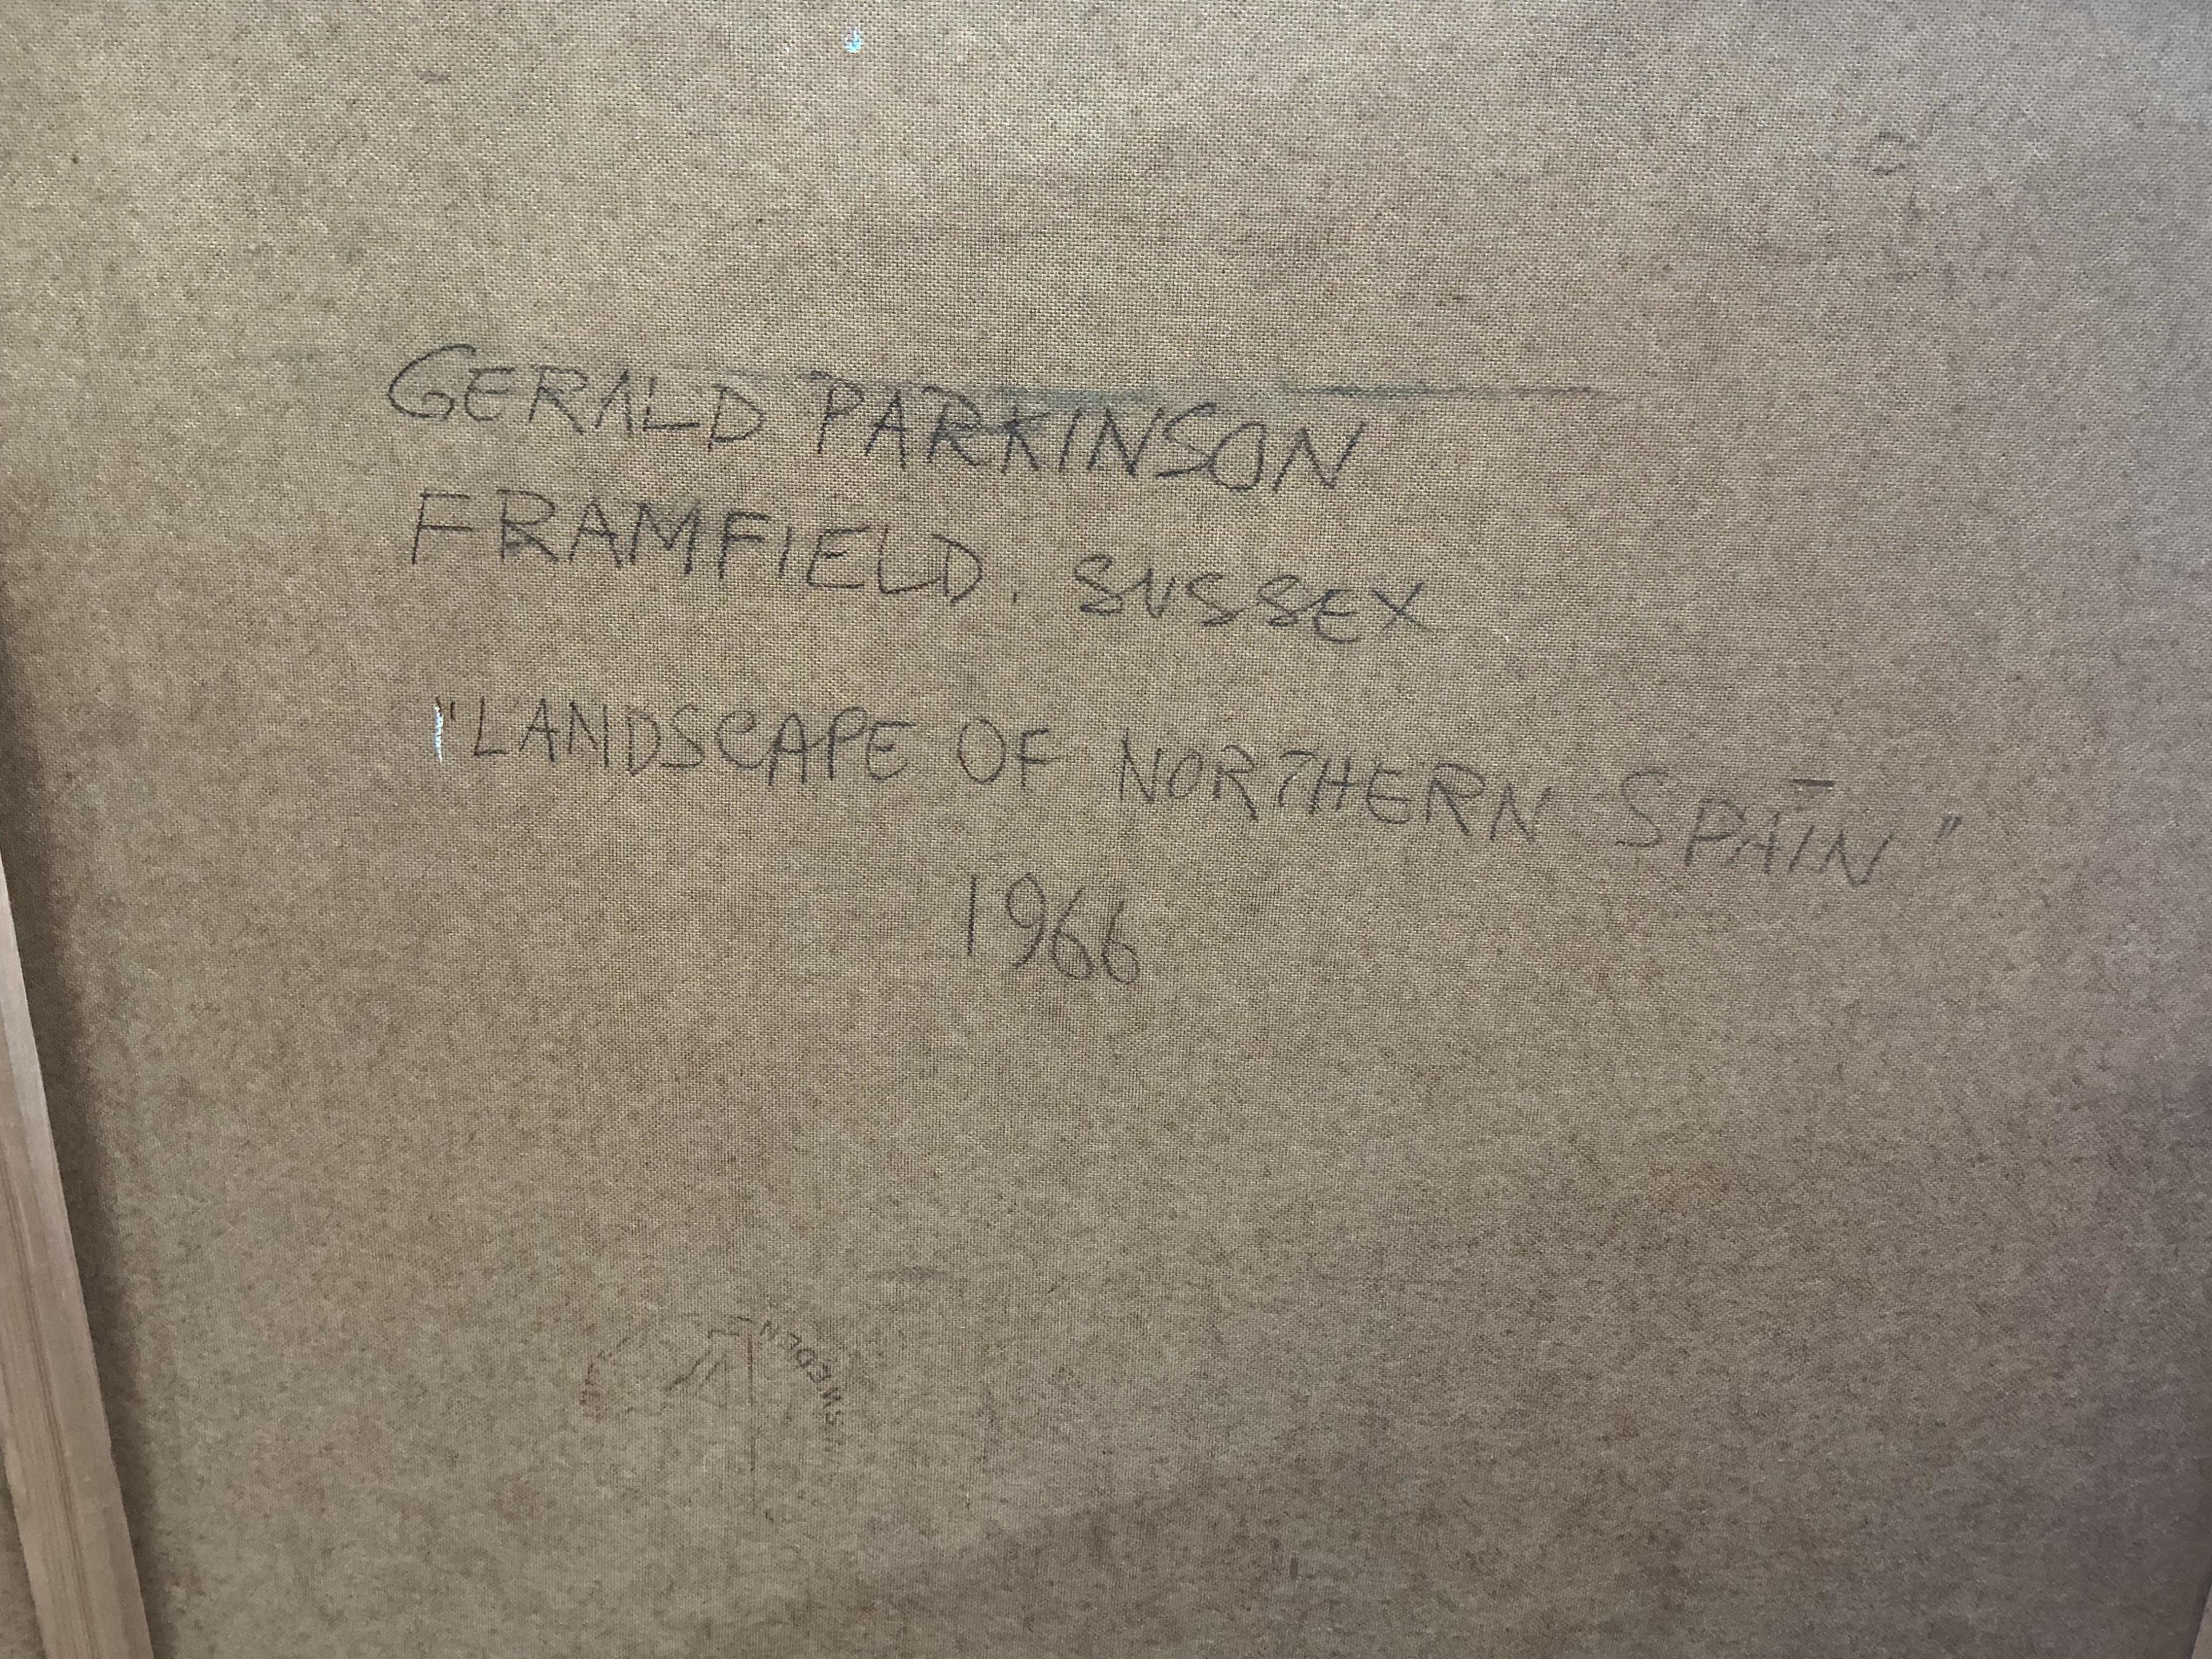 GERALD PARKINSON
FRAMFIELD. SUSSEX
"LANDSCAPE OF NORTHERN SPAIN"
1966
SWEDEN